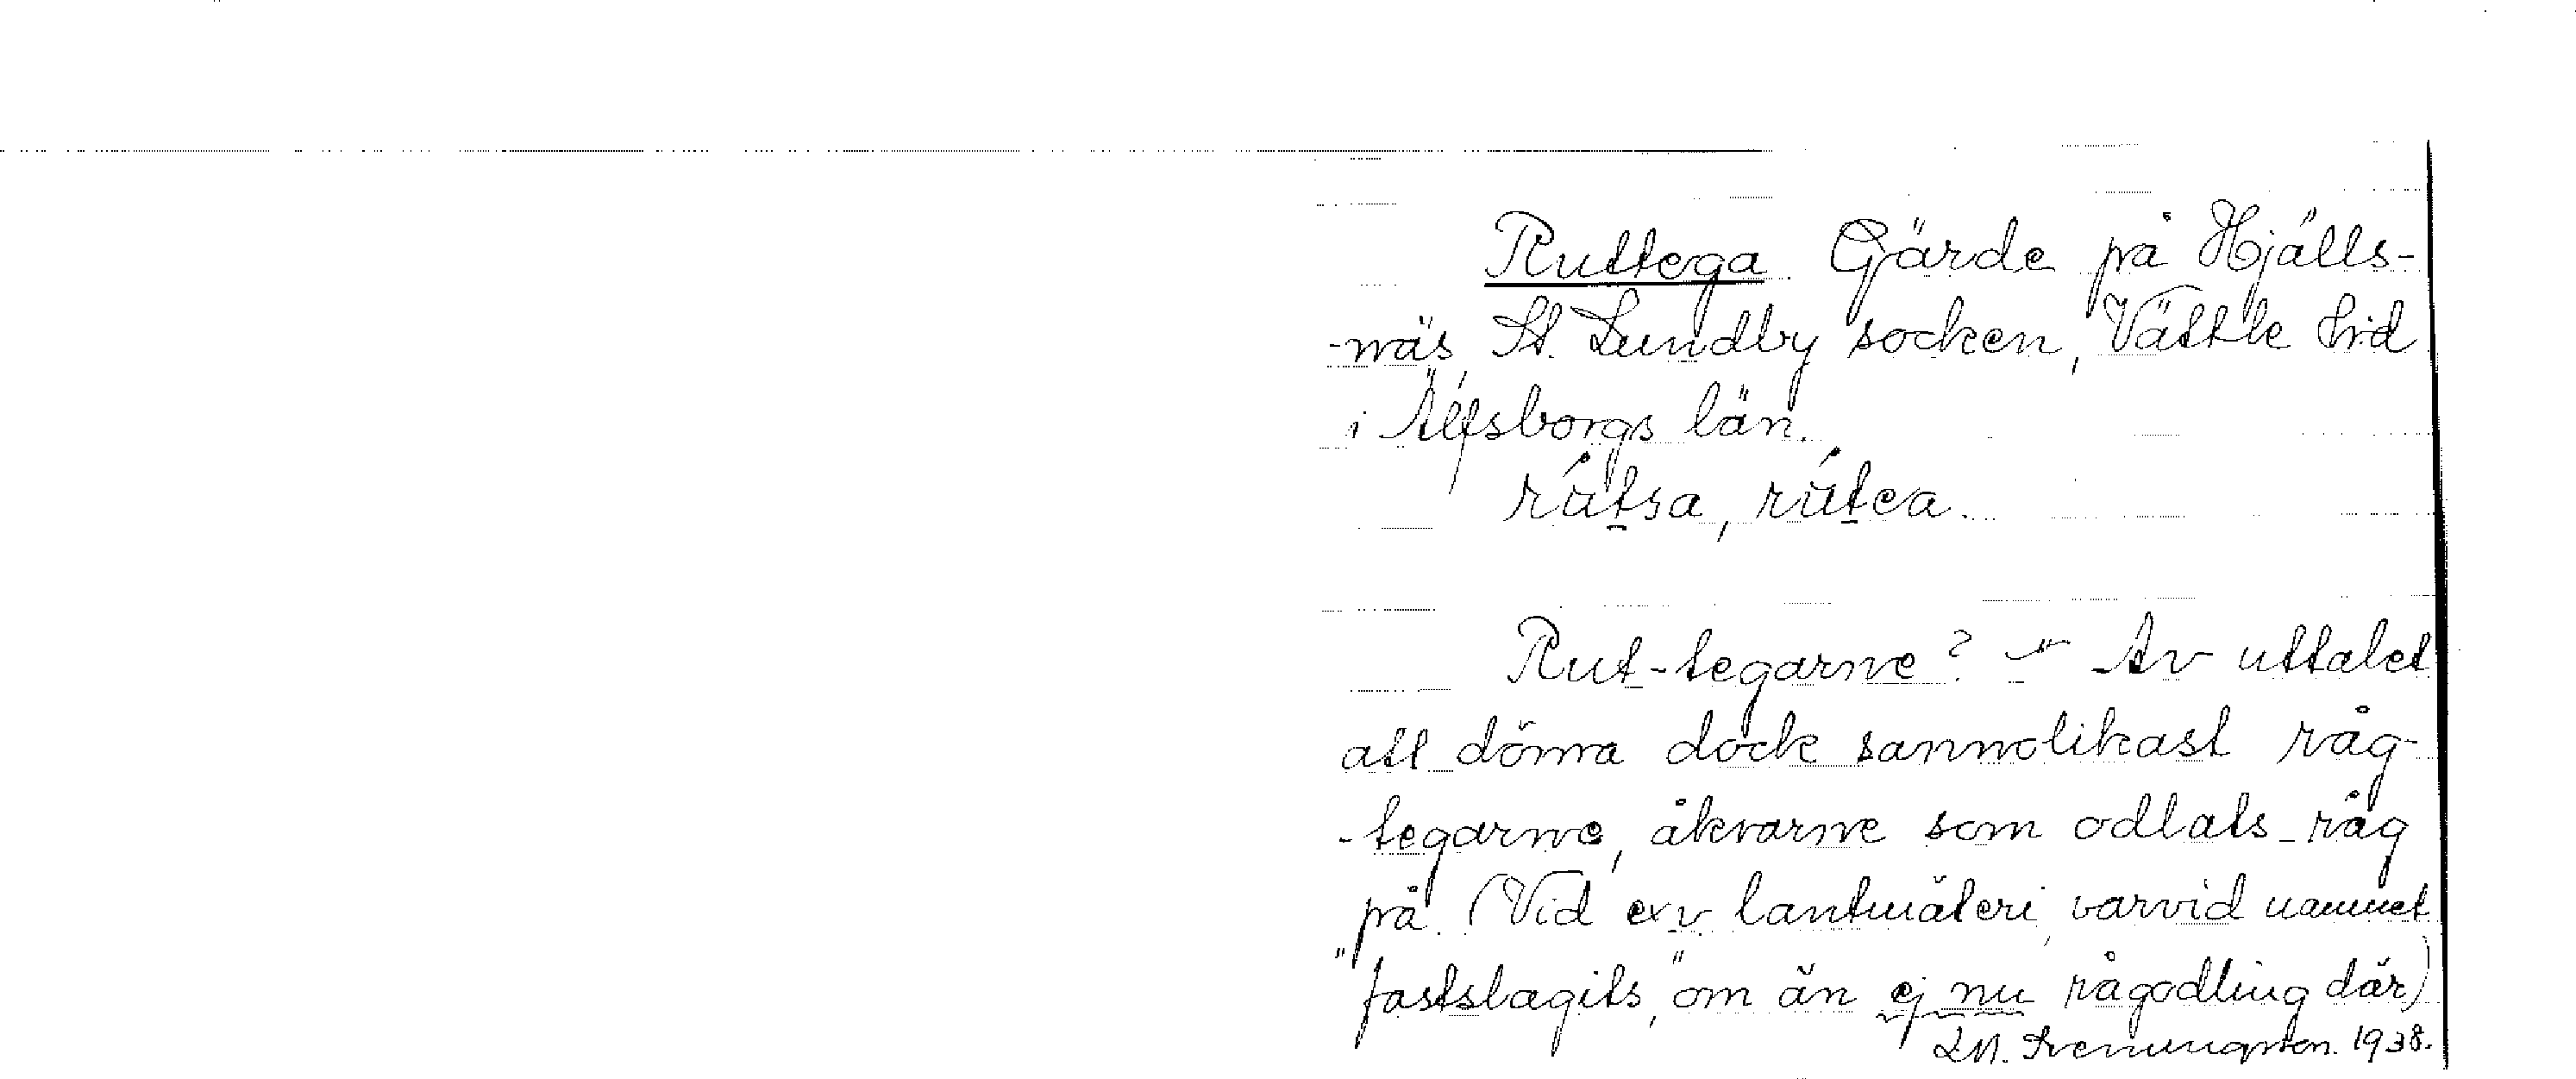 Ruttega. Gärde på Hjälls-
-näs, St. Lundby socken, Vättle hrd
i Älfsborgs län.
rútsa, rútea.
Rut-tegarne? - Av uttalet
att döma dock sannolikast råg-
-tegarne, åkrarne som odlats råg
på. (Vid exv lantmäteri, varvid namnet
"fastslagits," om än ej nu rågodling där)
1938.